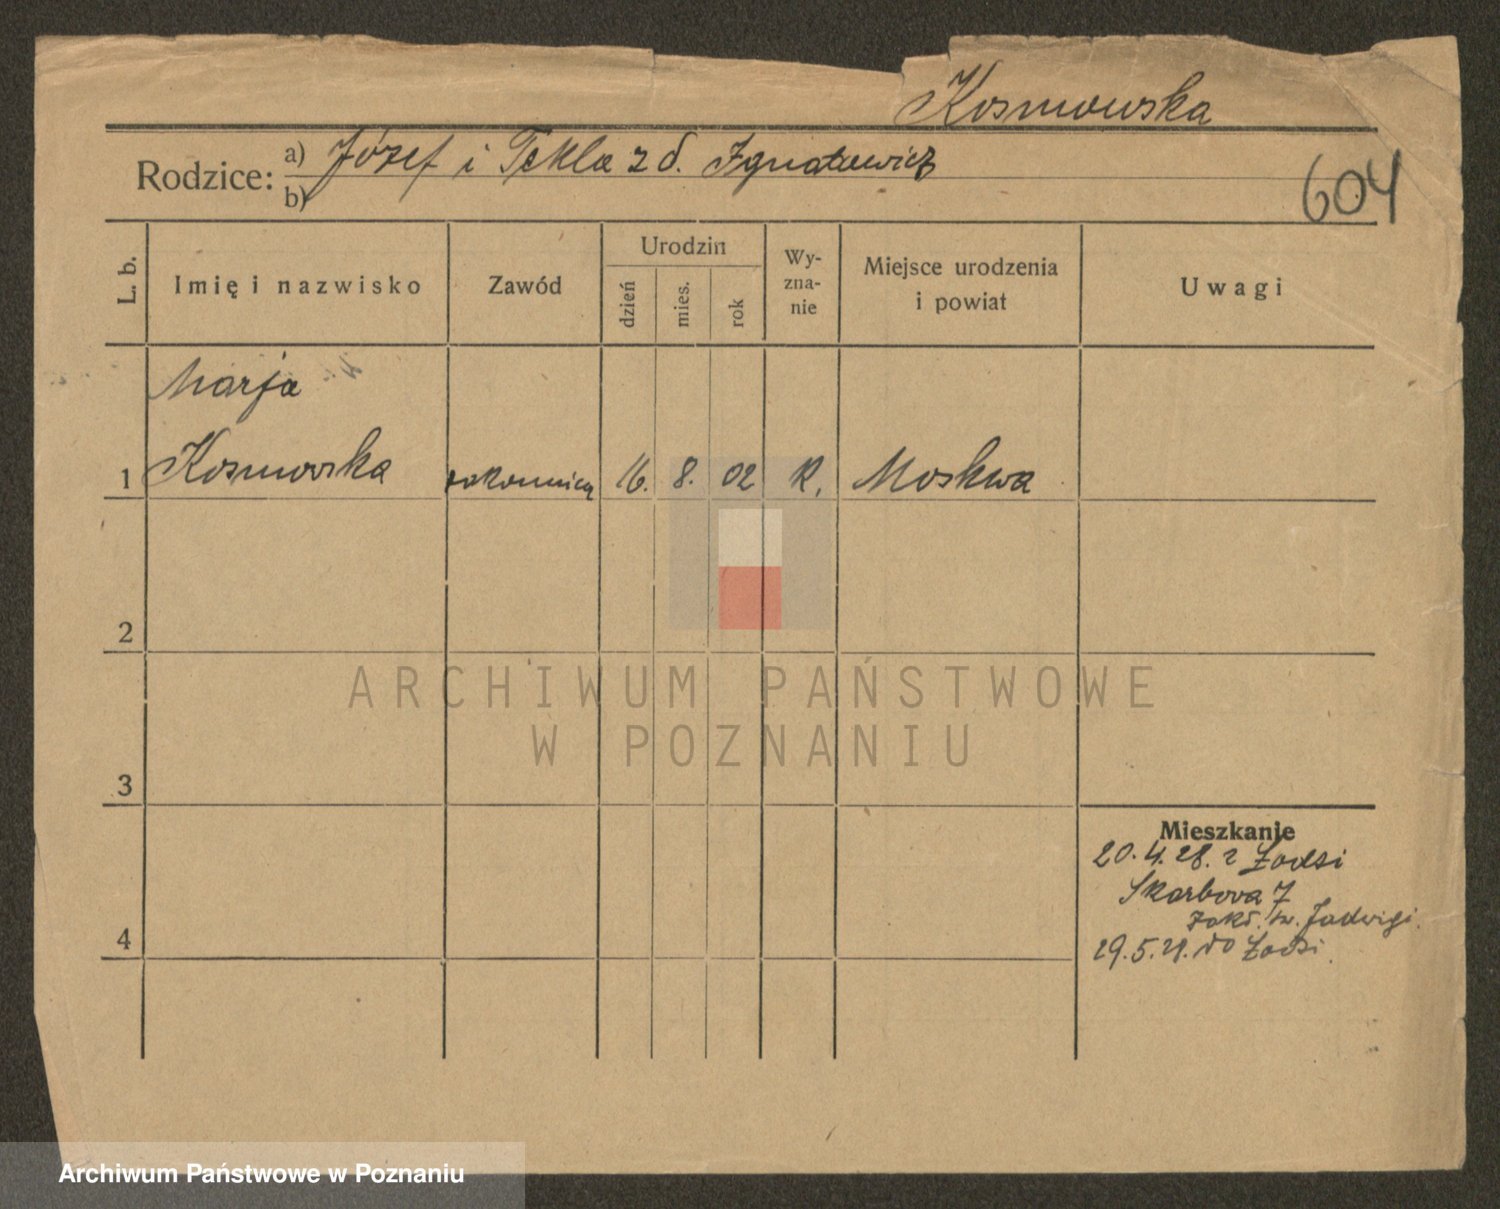 Kosmowska
Rodzice: a) Józef i Tekla z d. Ignatowicz
b)
604
L. b.
Imię i nazwisko
Zawód
Urodzin
dzień
mies.
rok
Wy-
zna-
nie
Miejsce urodzenia
i powiat
Uwagi
Marja
1 Kosmowska zakonnica 16. 8. 02 R. Moskwa
2
3
4
Mieszkanie
20.4.28. z Łodzi
Skarbowa 7
zakł. św. Jadwigi.
29.5.28. do Łodzi.
ARCHIWUM PAŃSTWOWE
W POZNANIU
Archiwum Państwowe w Poznaniu